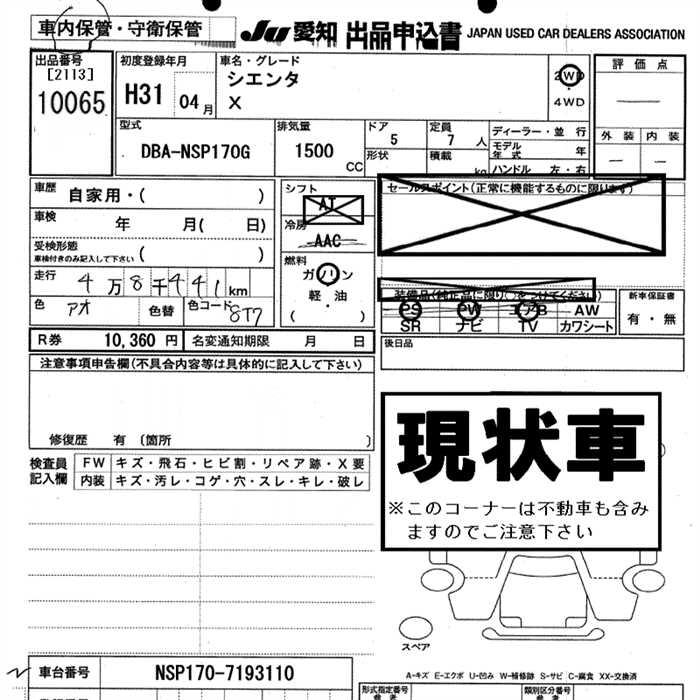 車内保管・守衛保管
JU 愛知 出品申込書 JAPAN USED CAR DEALERS ASSOCIATION
出品番号
[2113]
10065
初度登録年月
H31 04月
車名・グレード
シエンタ
X
2WD
4WD
評価点
外装 内装
型式
DBA-NSP170G
排気量
1500 CC
ドア
5
形状
定員
7 人
積載 kg
ディーラー・並行
モデル年式 年
ハンドル 左・右
車歴
自家用・( )
車検 年 月( 日)
受検形態
車検付きのみ記入して下さい ( )
走行 4万8千441km
色 アオ 色替 色コード 8T7
シフト
AT
冷房
AAC
燃料
ガソリン
軽・油
( )
セールスポイント(正常に機能するものに限ります)
装備品(純正品に限り○をつけてください)
PS PW エアB AW
SR ナビ TV カワシート
新車保証書
有・無
R券 10,360円 名変通知期限 月 日
後日品
注意事項申告欄(不具合内容等は具体的に記入して下さい)
修復歴 有 〔箇所 〕
検査員記入欄
FW キズ・飛石・ヒビ割・リペア跡・X要
内装 キズ・汚レ・コゲ・穴・スレ・キレ・破レ
現状車
※このコーナーは不動車も含み
ますのでご注意下さい
スペア
A-キズ E-エクボ U-凹み W-補修跡 S-サビ C-腐食 XX-交換済
車台番号 NSP170-7193110
形式指定番号
参考
類別区分番号
参考